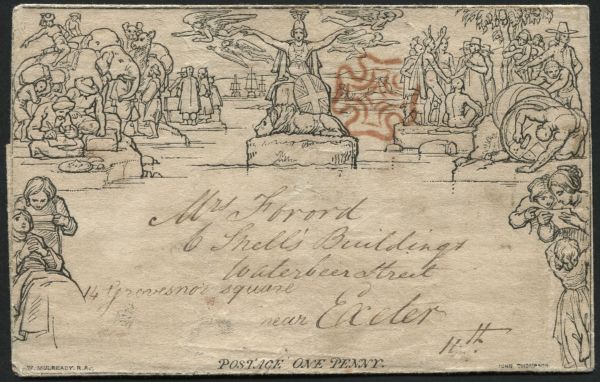 Mrs Forord
6 Shell's Buildings
Waterbeer Street
14 Grovesnor square
near Exeter
14th
POSTAGE ONE PENNY.
W. MULREADY. R.A.
JOHN THOMPSON